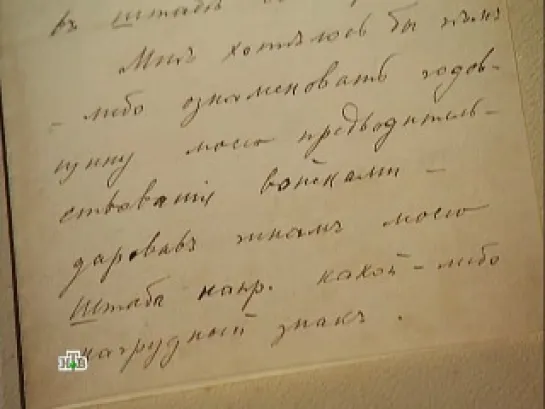 въ Штабъ
Мнѣ хотѣлось бы чѣмъ
- либо ознаменовать годов-
щину моего предводитель-
ствованія войсками -
даровавъ чинамъ моего
Штаба напр. какой-либо
нагрудный знакъ.
НТВ